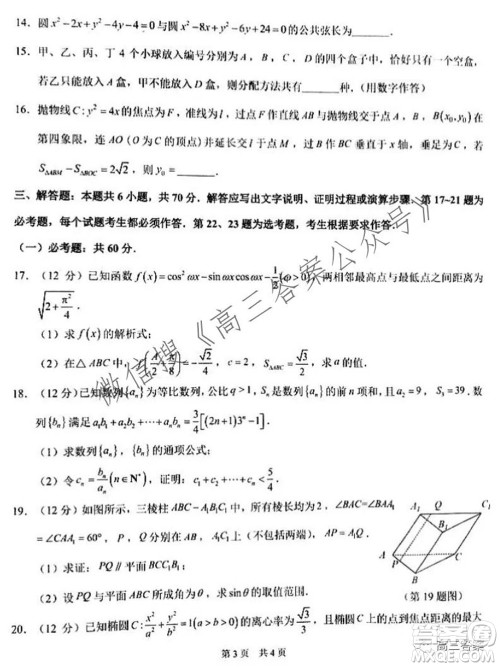 14. 圆x²-2x+y²-4y-4=0与圆x²-8x+y²-6y+24=0的公共弦长为______.
15. 甲、乙、丙、丁4个小球放入编号分别为A，B，C，D的四个盒子中，恰好只有一个空盒，
若乙只能放入A盒，甲不能放入D盒，则分配方法共有______种.（用数字作答）
16. 抛物线C:y²=4x的焦点为F，准线为l，过点F作直线AB与抛物线交于点A，B，B(x₀,y₀)在
第四象限，连AO（O为坐标原点）并延长交l于点M，若BC垂直于x轴，垂足为C，若
S△ABM-S△BOC=2√2，则y₀______.
三、解答题：本题共6小题，共70分．解答应写出文字说明、证明过程或演算步骤．第17~21题为
必考题，每个试题考生都必须作答．第22、23题为选考题，考生根据要求作答．
（一）必考题：共60分．
17.（12分）已知函数f(x)=cos²ωx-sinωxcosωx-1/2(ω>0)，两相邻最高点与最低点之间距离为
√(2+π²/4).
（1）求f(x)的解析式；
（2）在△ABC中，f(A/2+π/8)=-√2/4，c=2，S△ABC=√3/2，求a的值．
18.（12分）已知数列{aₙ}为等比数列，公比q>1，Sₙ为数列{aₙ}的前n项和，且a₂=9，S₃=39．数
列{bₙ}满足a₁b₁+a₂b₂+…+aₙbₙ=3/4[(2n+1)3ⁿ-1].
（1）求数列{aₙ}，{bₙ}的通项公式；
（2）令cₙ=bₙ/aₙ(n∈N*)，证明：c₁+c₂+…+cₙ<3/4.
19.（12分）如图所示，三棱柱ABC-A₁B₁C₁中，所有棱长均为2，∠BAC=∠BAA₁
=∠CAA₁=60°，P，Q分别在AB，A₁C₁上（不包括两端），AP=A₁Q.
（1）求证：PQ∥平面BCC₁B₁；
（2）设PQ与平面ABC所成角为θ，求sinθ的取值范围．
A₁
Q
C₁
B₁
A
P
C
B
（第19题图）
20.（12分）已知椭圆C:x²/a²+y²/b²=1(a>b>0)的离心率为√3/3，且椭圆C上的点到焦点距离的最大
第3页 共4页
微信搜《高三答案公众号》
高三答案